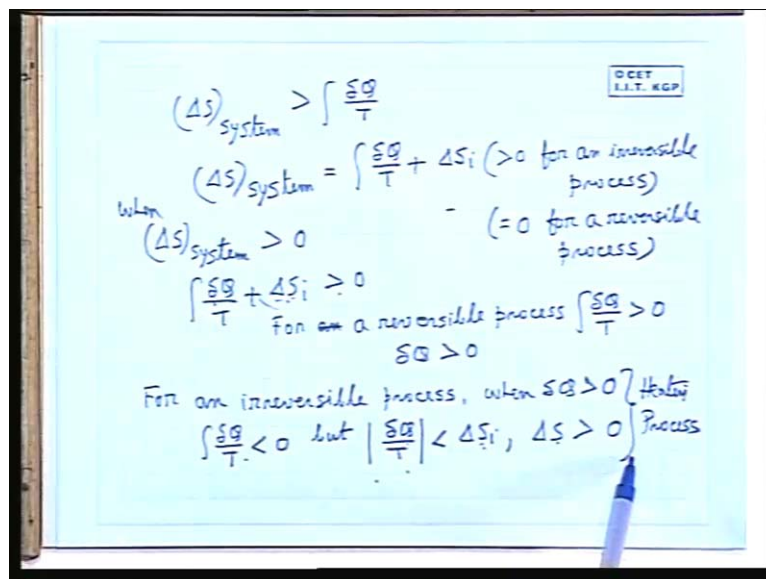 © CET
I.I.T. KGP
(ΔS)system > ∫ δQ/T
(ΔS)system = ∫ δQ/T + ΔSi (>0 for an irreversible
process)
when
(=0 for a reversible
process)
(ΔS)system > 0
∫ δQ/T + ΔSi > 0
For a reversible process ∫ δQ/T > 0
δQ > 0
For an irreversible process, when δQ > 0 } Heating
∫ δQ/T < 0 but |δQ/T| < ΔSi, ΔS > 0 } Process